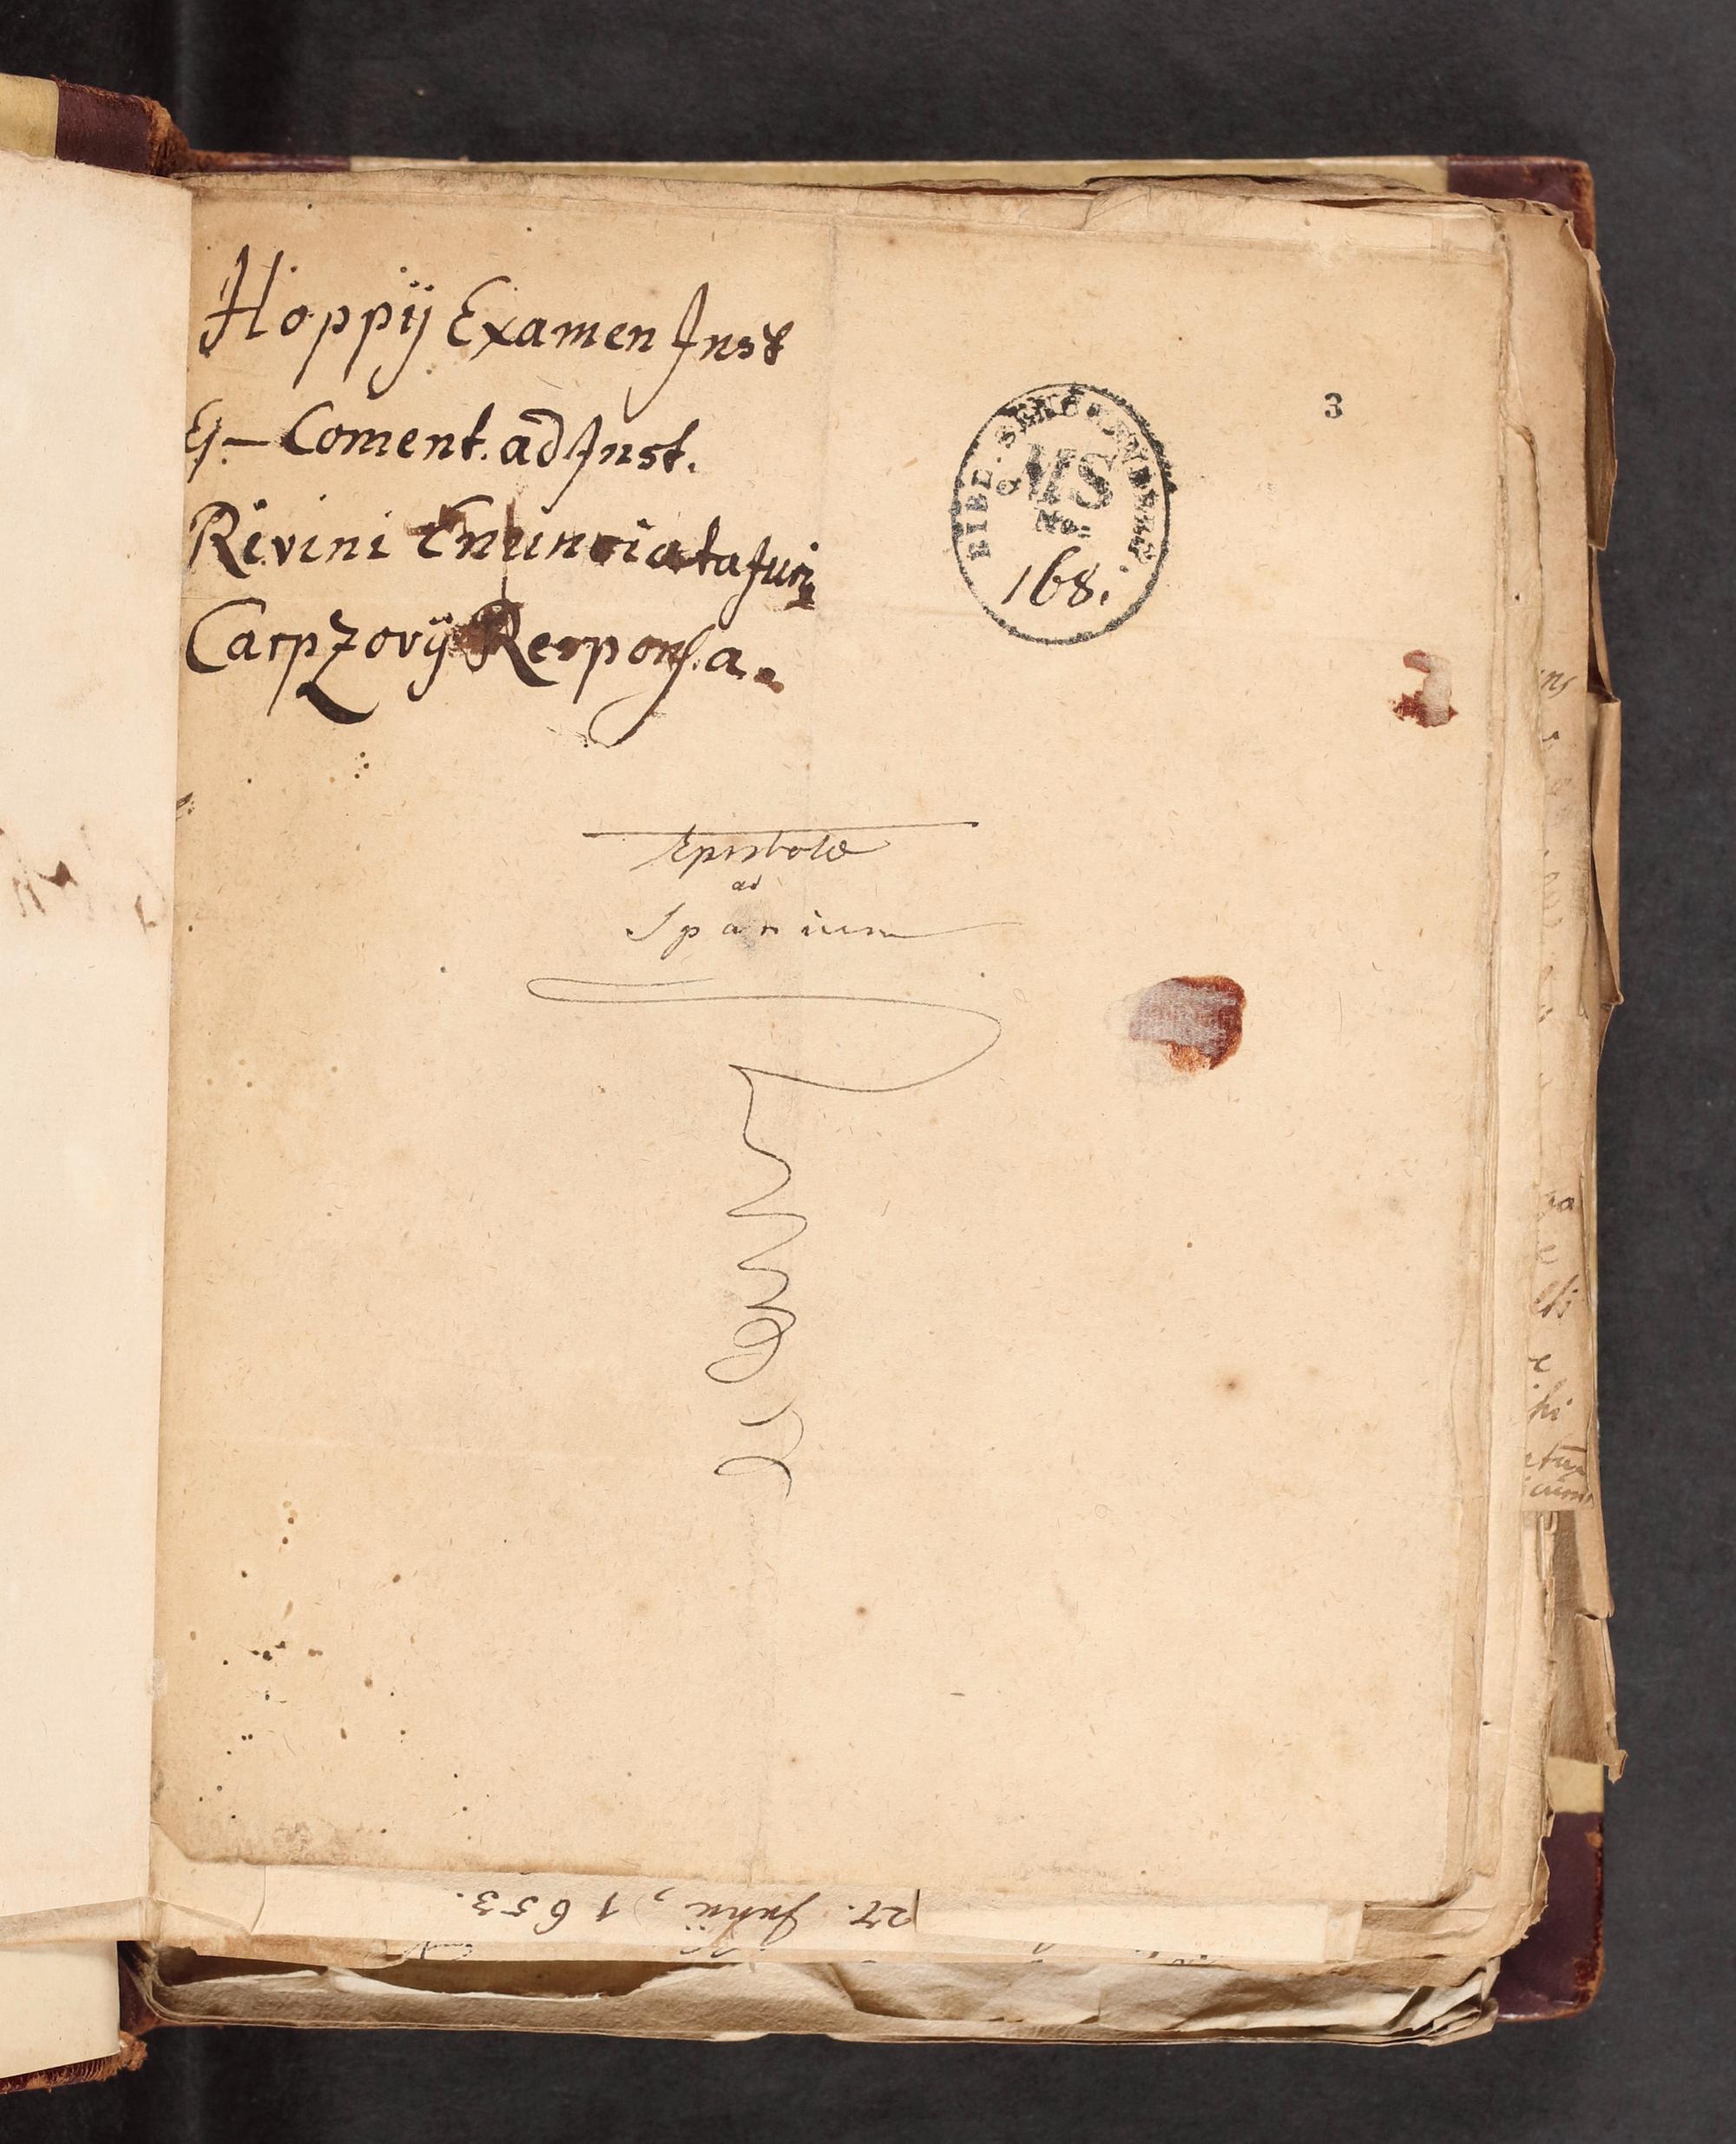 Hoppÿ Examen Inst
Ej.— Coment. ad Inst.
Rivini Enunciata Juris
Carpzovÿ Responsa.
3
MS
No.
168.
Epistolæ
ad
Spanium
27. Julii, 1653.